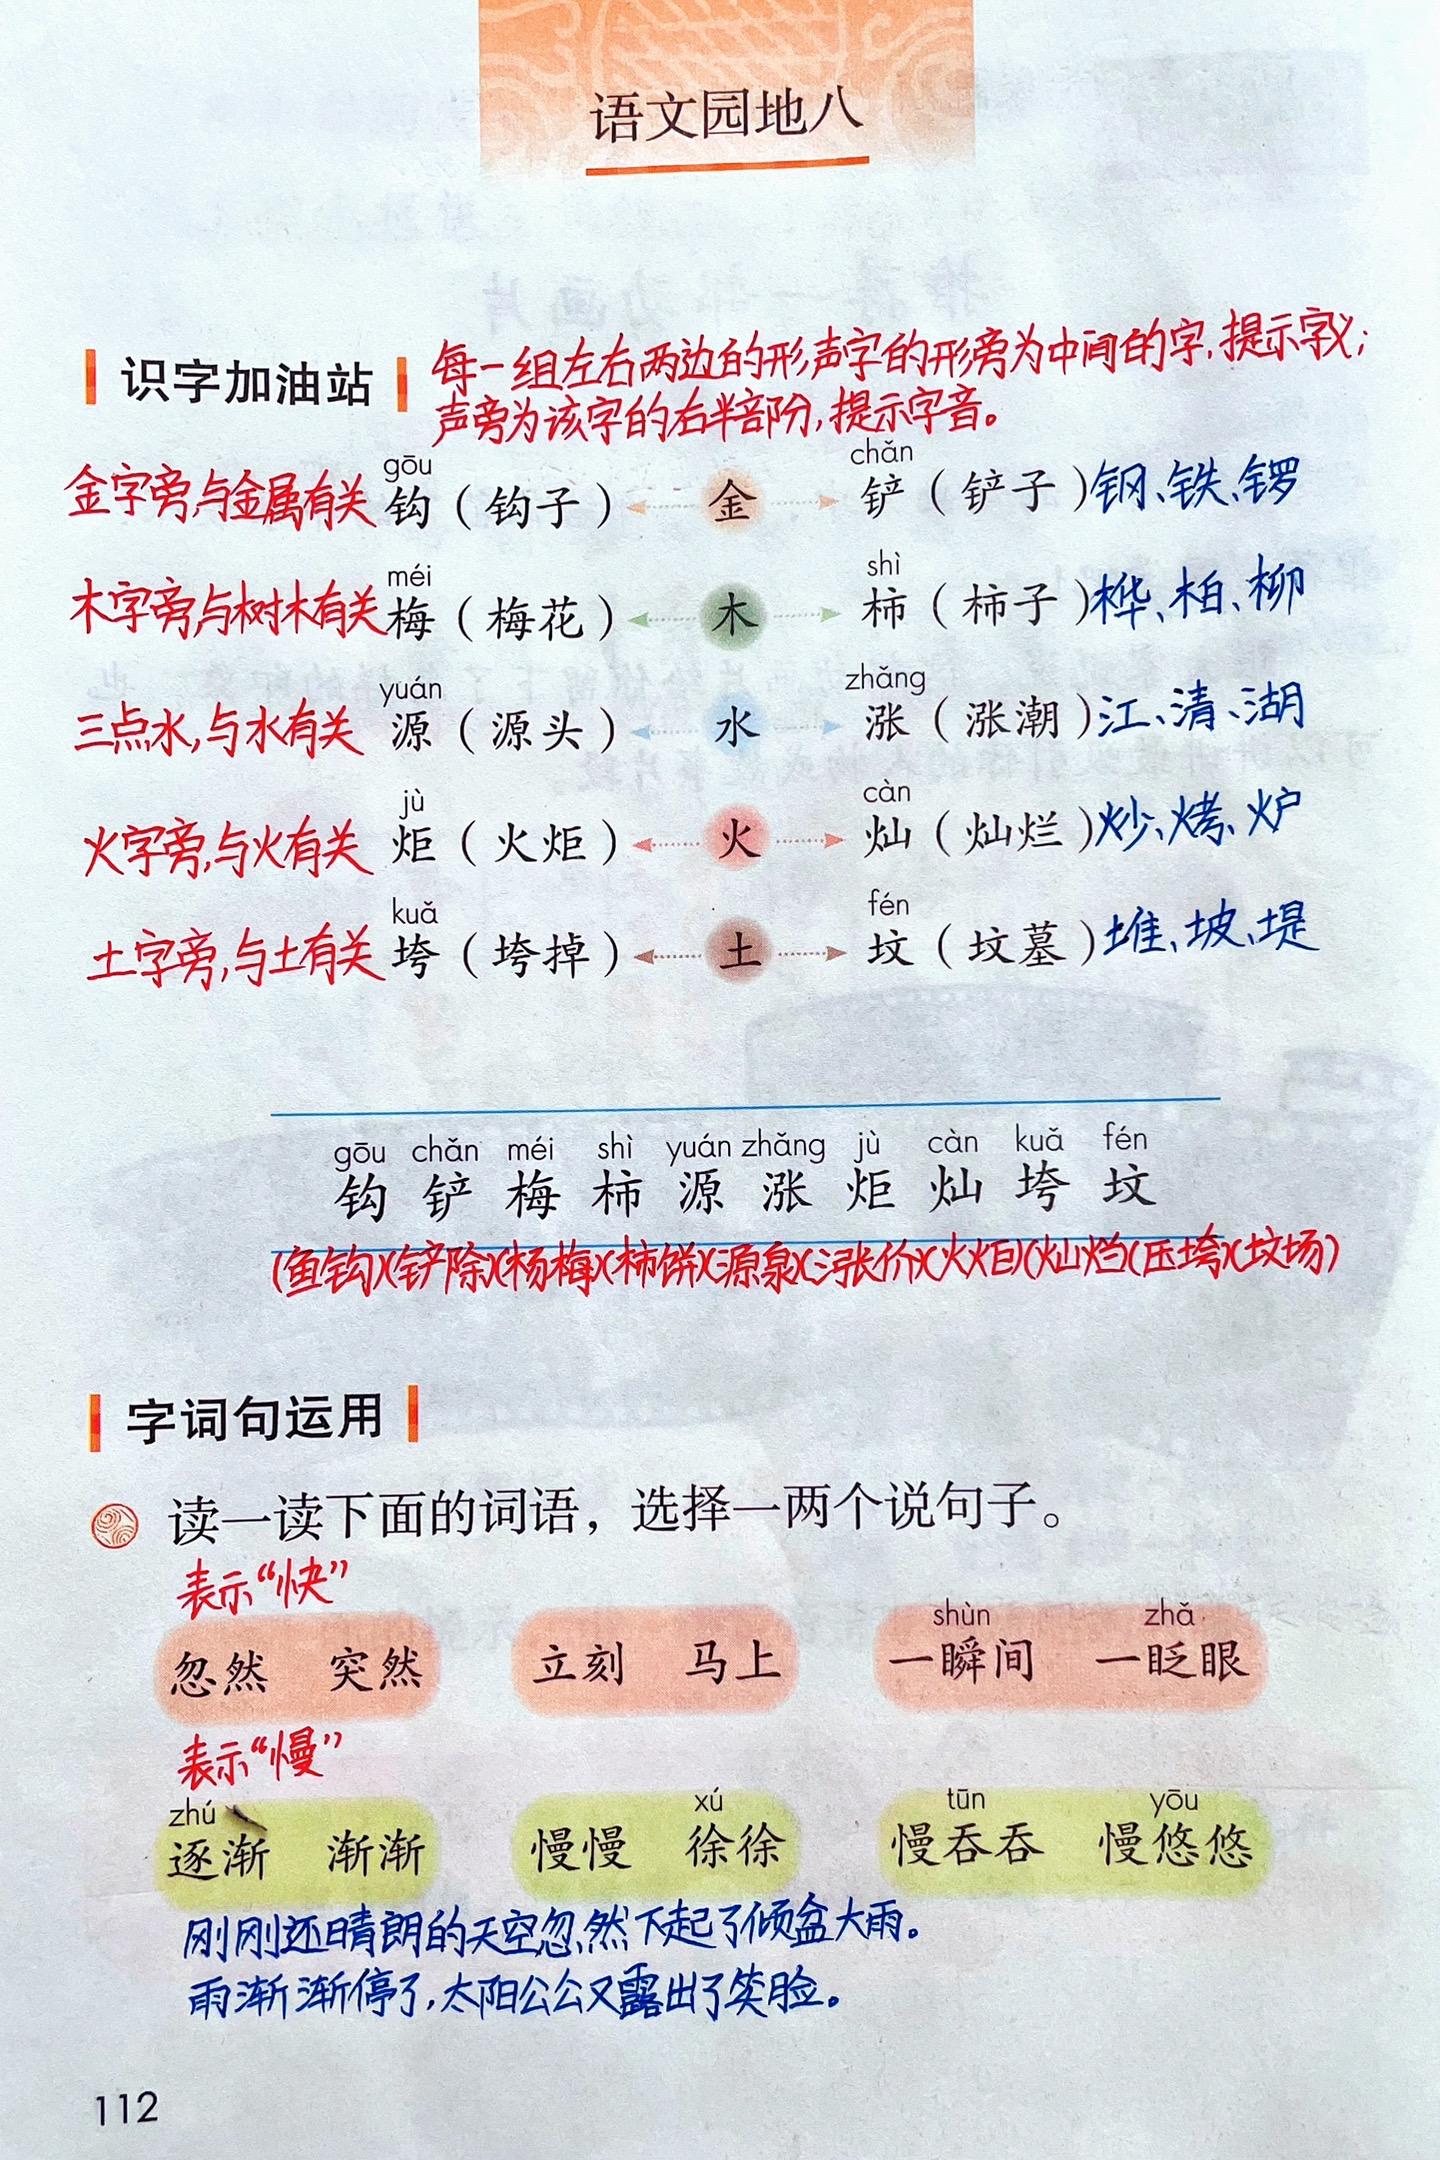 语文园地八
识字加油站
每一组左右两边的形声字的形旁为中间的字,提示字义;
声旁为该字的右半部分,提示字音。
gōu chǎn
金字旁,与金属有关 钩（钩子） 金 铲（铲子）钢、铁、锣
méi shì
木字旁,与树木有关 梅（梅花） 木 柿（柿子）桦、柏、柳
yuán zhǎng
三点水,与水有关 源（源头） 水 涨（涨潮）江、清、湖
jù càn
火字旁,与火有关 炬（火炬） 火 灿（灿烂）炒、烤、炉
kuǎ fén
土字旁,与土有关 垮（垮掉） 土 坟（坟墓）堆、坡、堤
gōu chǎn méi shì yuán zhǎng jù càn kuǎ fén
钩 铲 梅 柿 源 涨 炬 灿 垮 坟
(鱼钩)(铲除)(杨梅)(柿饼)(源泉)(涨价)(火炬)(灿烂)(压垮)(坟场)
字词句运用
读一读下面的词语，选择一两个说句子。
表示“快”
shùn zhǎ
忽然 突然 立刻 马上 一瞬间 一眨眼
表示“慢”
zhú xú tūn yōu
逐渐 渐渐 慢慢 徐徐 慢吞吞 慢悠悠
刚刚还晴朗的天空忽然下起了倾盆大雨。
雨渐渐停了,太阳公公又露出了笑脸。
112